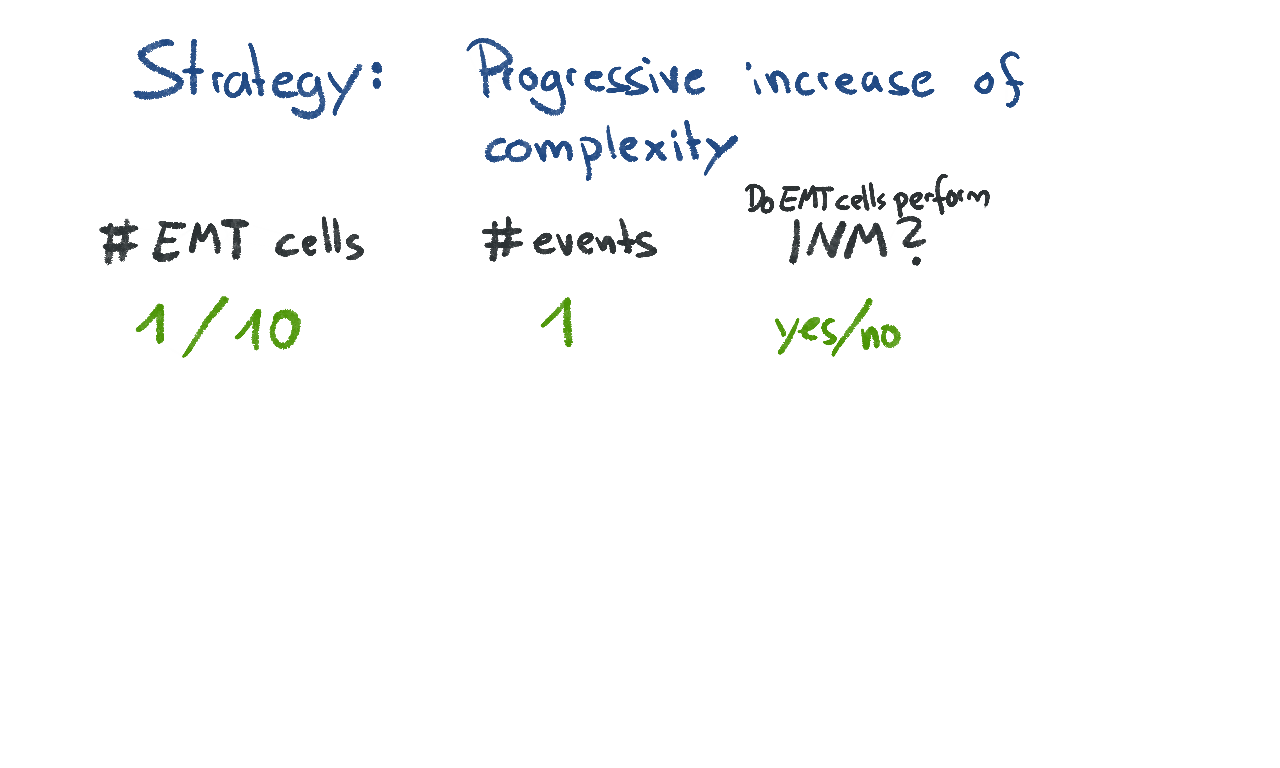 Strategy: Progressive increase of
complexity
Do EMT cells perform
# EMT cells # events INM?
1/10 1 yes/no